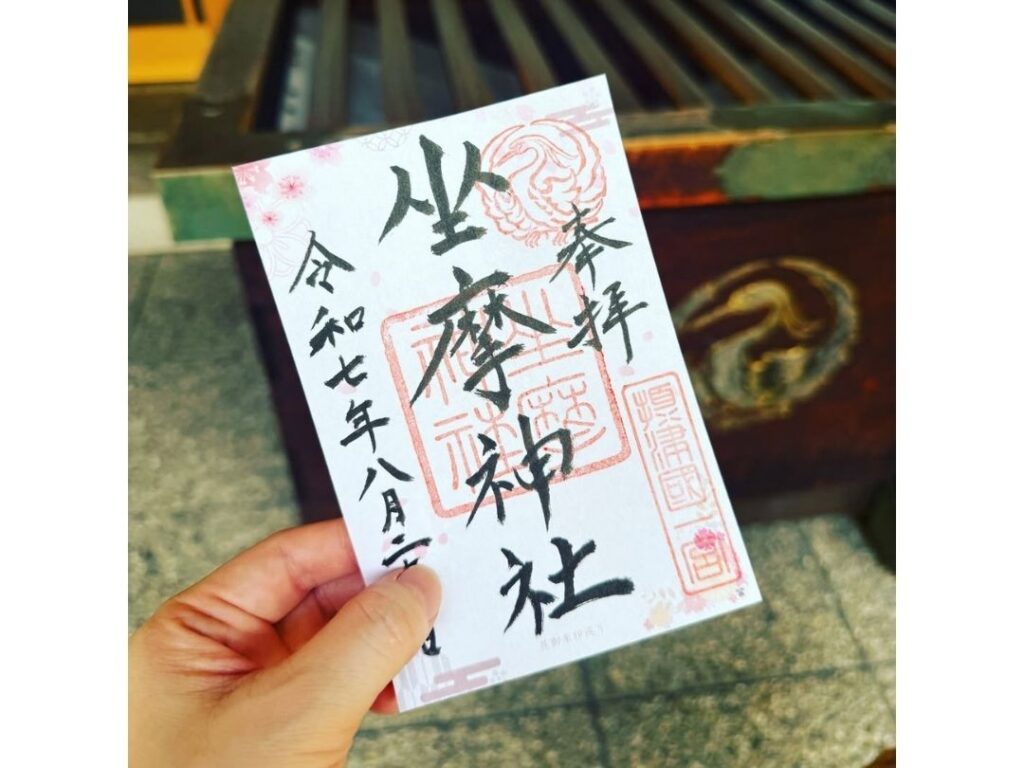 奉拝
攝津國一宮
坐摩神社
坐摩神社
令和七年八月二十日